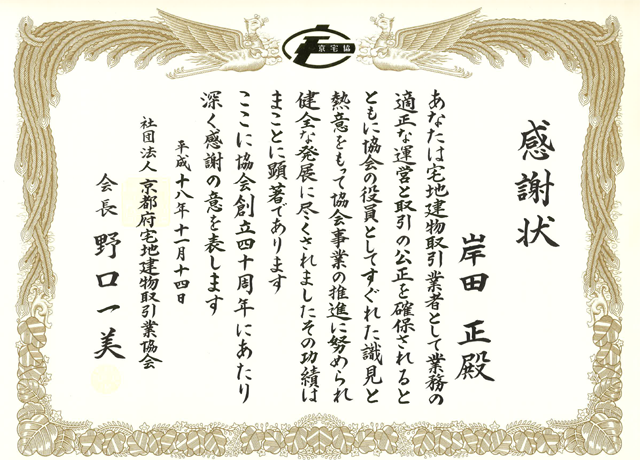 京宅協
感謝状
岸田 正殿
あなたは宅地建物取引業者として業務の
適正な運営と取引の公正を確保されると
ともに協会の役員としてすぐれた識見と
熱意をもって協会事業の推進に努められ
健全な発展に尽くされましたその功績は
まことに顕著であります
ここに協会創立四十周年にあたり
深く感謝の意を表します
平成十八年十一月十四日
社団法人 京都府宅地建物取引業協会
会長 野口一美